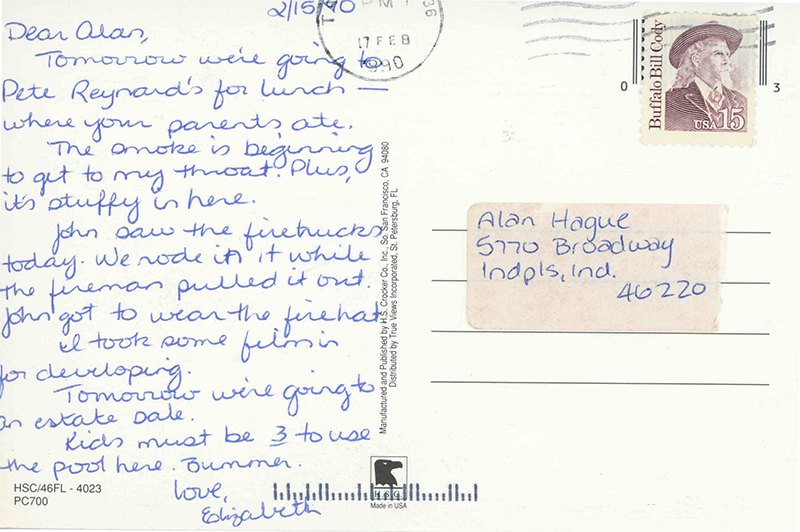 2/15/90
Dear Alan,
Tomorrow we're going to
Pete Reynard's for lunch —
where your parents ate.
The smoke is beginning
to get to my throat. Plus,
it's stuffy in here.
John saw the firetrucks
today. We rode in it while
the fireman pulled it out.
John got to wear the firehat
I took some films in
for developing.
Tomorrow we're going to
an estate sale.
Kids must be 3 to use
the pool here. Bummer.
Love,
Elizabeth
HSC/46FL - 4023
PC700
Manufactured and Published by H.S. Crocker Co. Inc., So. San Francisco, CA 94080
Distributed by True Views Incorporated, St. Petersburg, FL
H.S.C.
Made in USA
PM
17 FEB
1990
Buffalo Bill Cody
USA 15
0 3
Alan Hague
5770 Broadway
Indpls, Ind.
46220